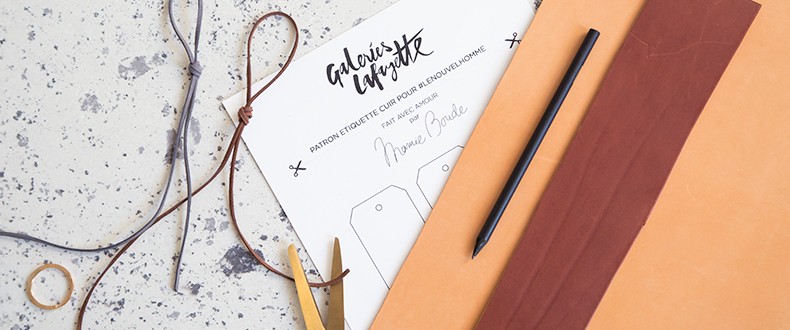 Galeries
Lafayette
PATRON ETIQUETTE CUIR POUR #LENOUVELHOMME
FAIT AVEC AMOUR
par
Mamie Boude